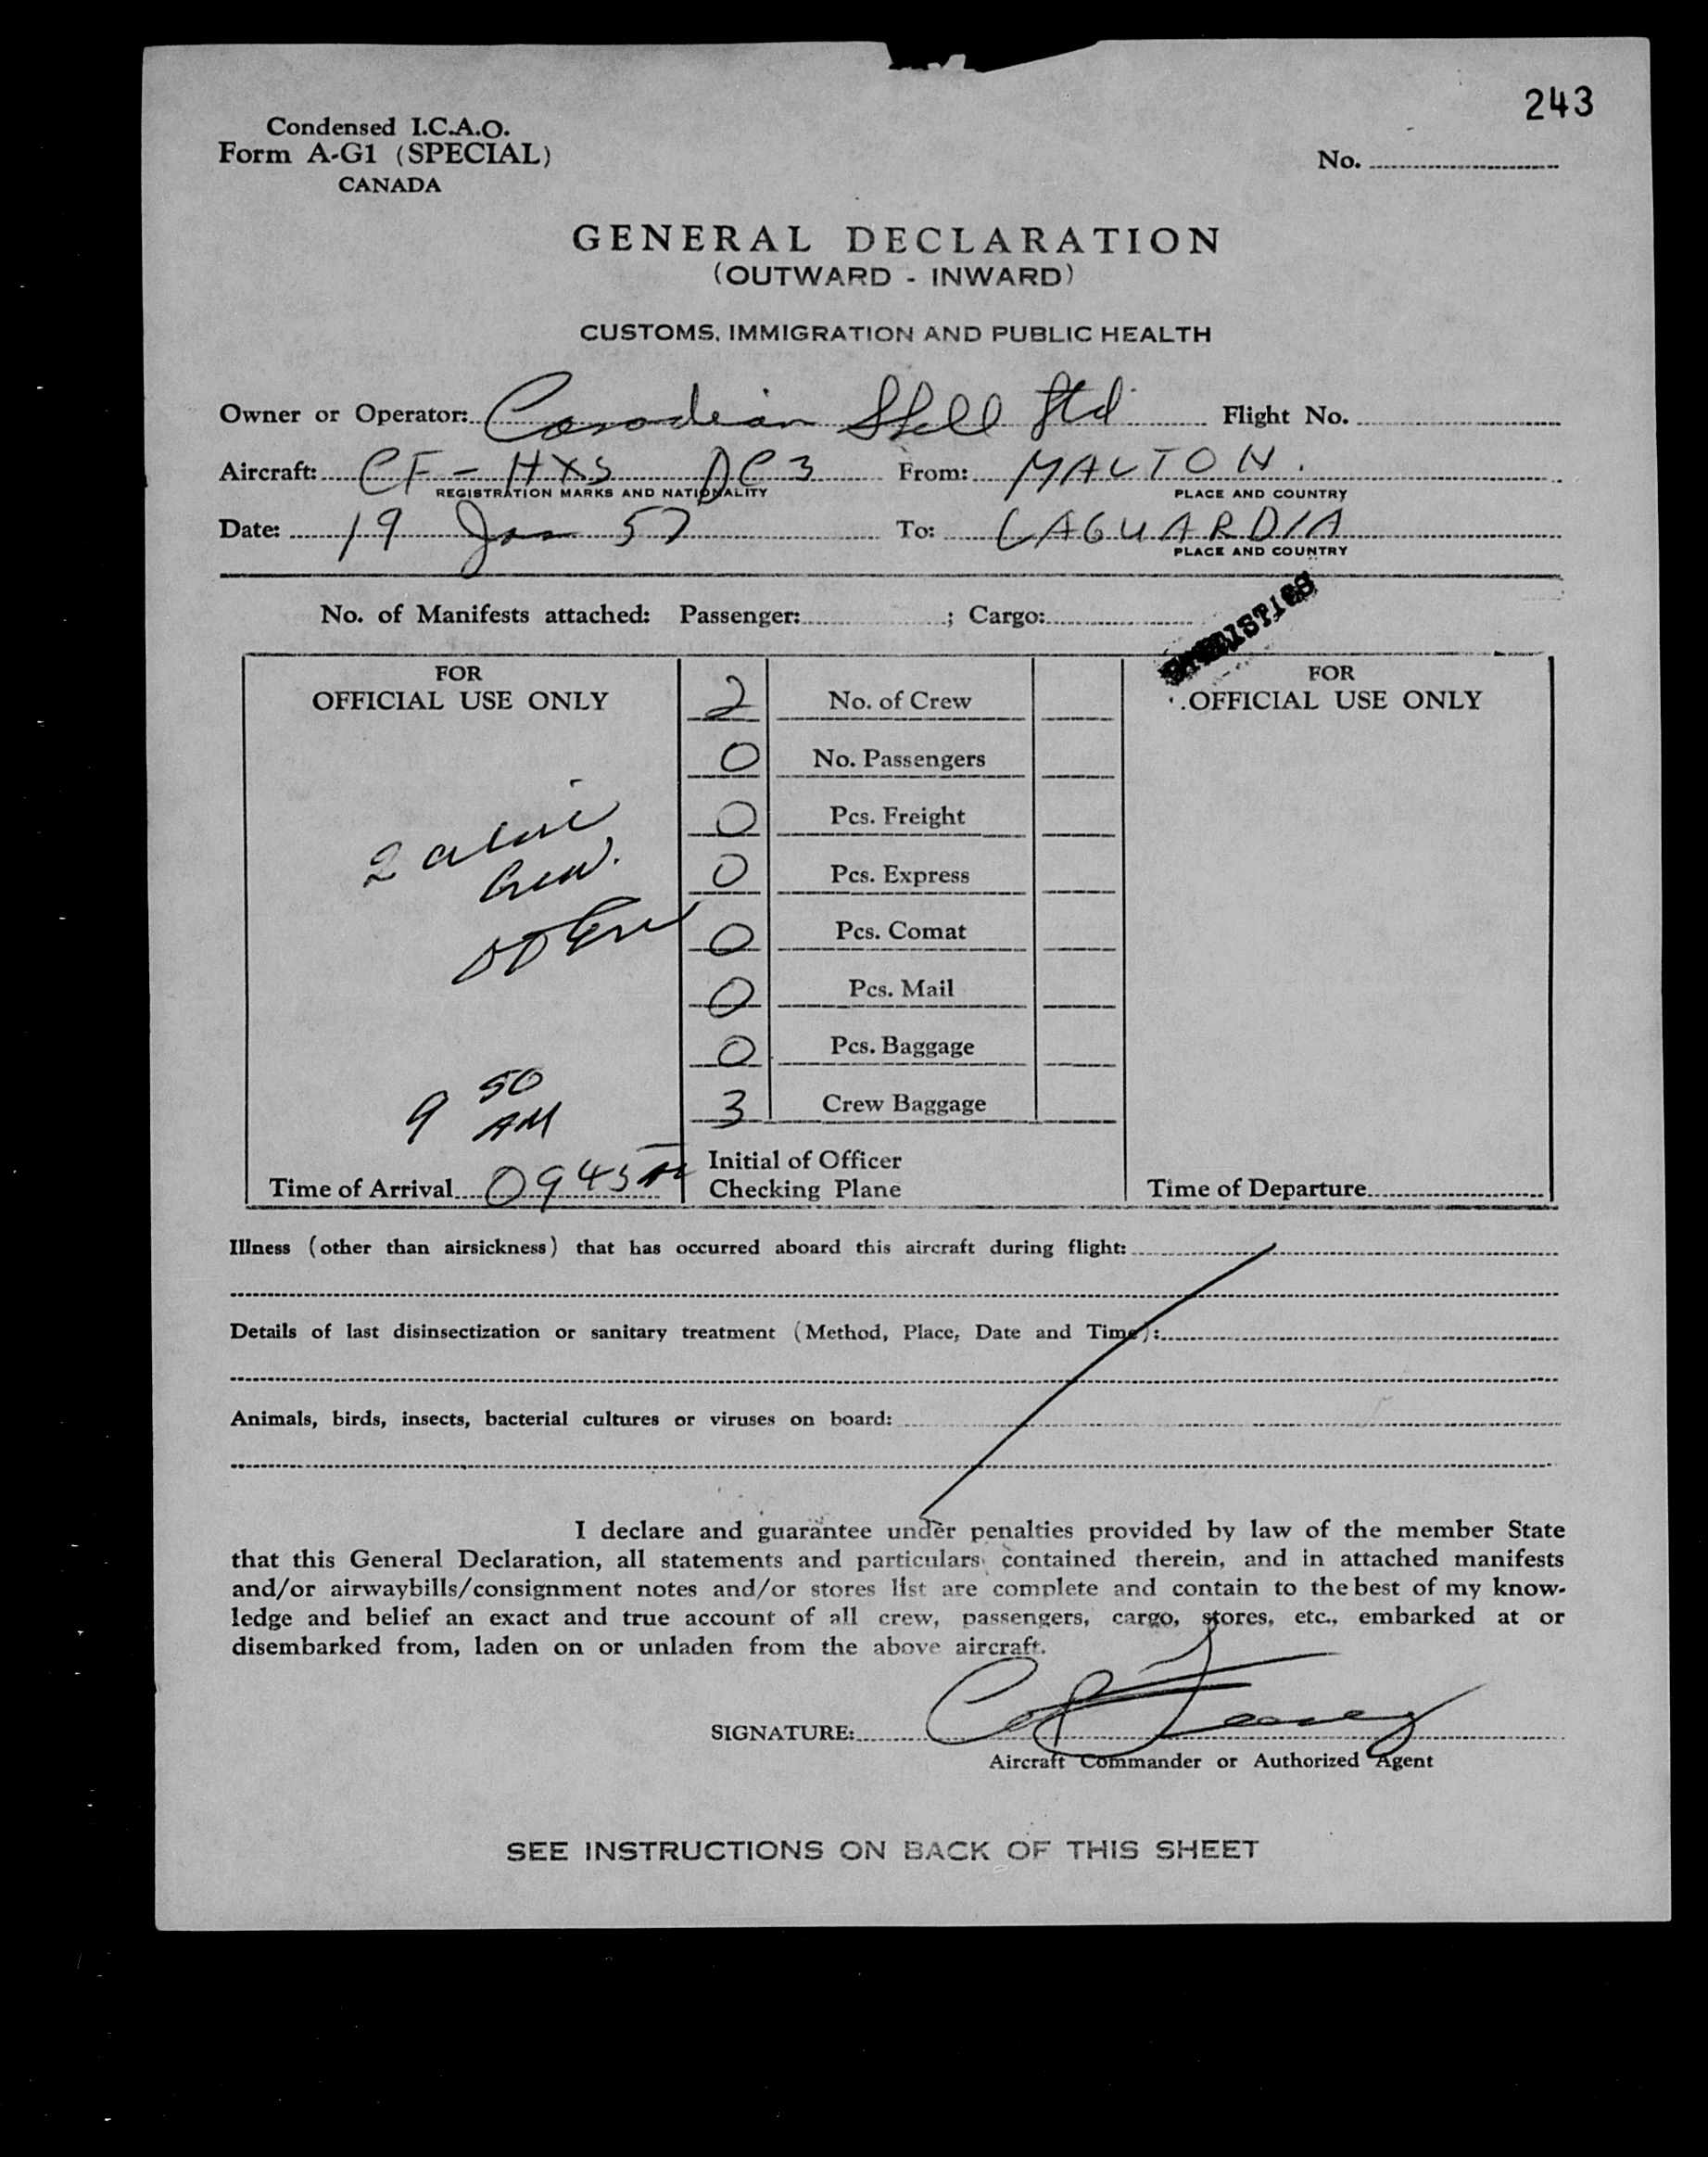 243
Condensed I.C.A.O.
Form A-G1 (SPECIAL)
CANADA
No.
GENERAL DECLARATION
(OUTWARD - INWARD)
CUSTOMS, IMMIGRATION AND PUBLIC HEALTH
Owner or Operator: Canadian Shell Ltd Flight No.
Aircraft: CF-HXS DC3 From: MALTON.
REGISTRATION MARKS AND NATIONALITY PLACE AND COUNTRY
Date: 19 Jan 57 To: LAGUARDIA
PLACE AND COUNTRY
No. of Manifests attached: Passenger: ; Cargo:
STATISTICS
FOR
OFFICIAL USE ONLY
2 alien
Crew.
9 50
AM
Time of Arrival 0945
2 No. of Crew
0 No. Passengers
0 Pcs. Freight
0 Pcs. Express
0 Pcs. Comat
0 Pcs. Mail
0 Pcs. Baggage
3 Crew Baggage
Initial of Officer
Checking Plane
FOR
OFFICIAL USE ONLY
Time of Departure
Illness (other than airsickness) that has occurred aboard this aircraft during flight:
Details of last disinsectization or sanitary treatment (Method, Place, Date and Time):
Animals, birds, insects, bacterial cultures or viruses on board:
I declare and guarantee under penalties provided by law of the member State
that this General Declaration, all statements and particulars contained therein, and in attached manifests
and/or airwaybills/consignment notes and/or stores list are complete and contain to the best of my know-
ledge and belief an exact and true account of all crew, passengers, cargo, stores, etc., embarked at or
disembarked from, laden on or unladen from the above aircraft.
SIGNATURE:
Aircraft Commander or Authorized Agent
SEE INSTRUCTIONS ON BACK OF THIS SHEET